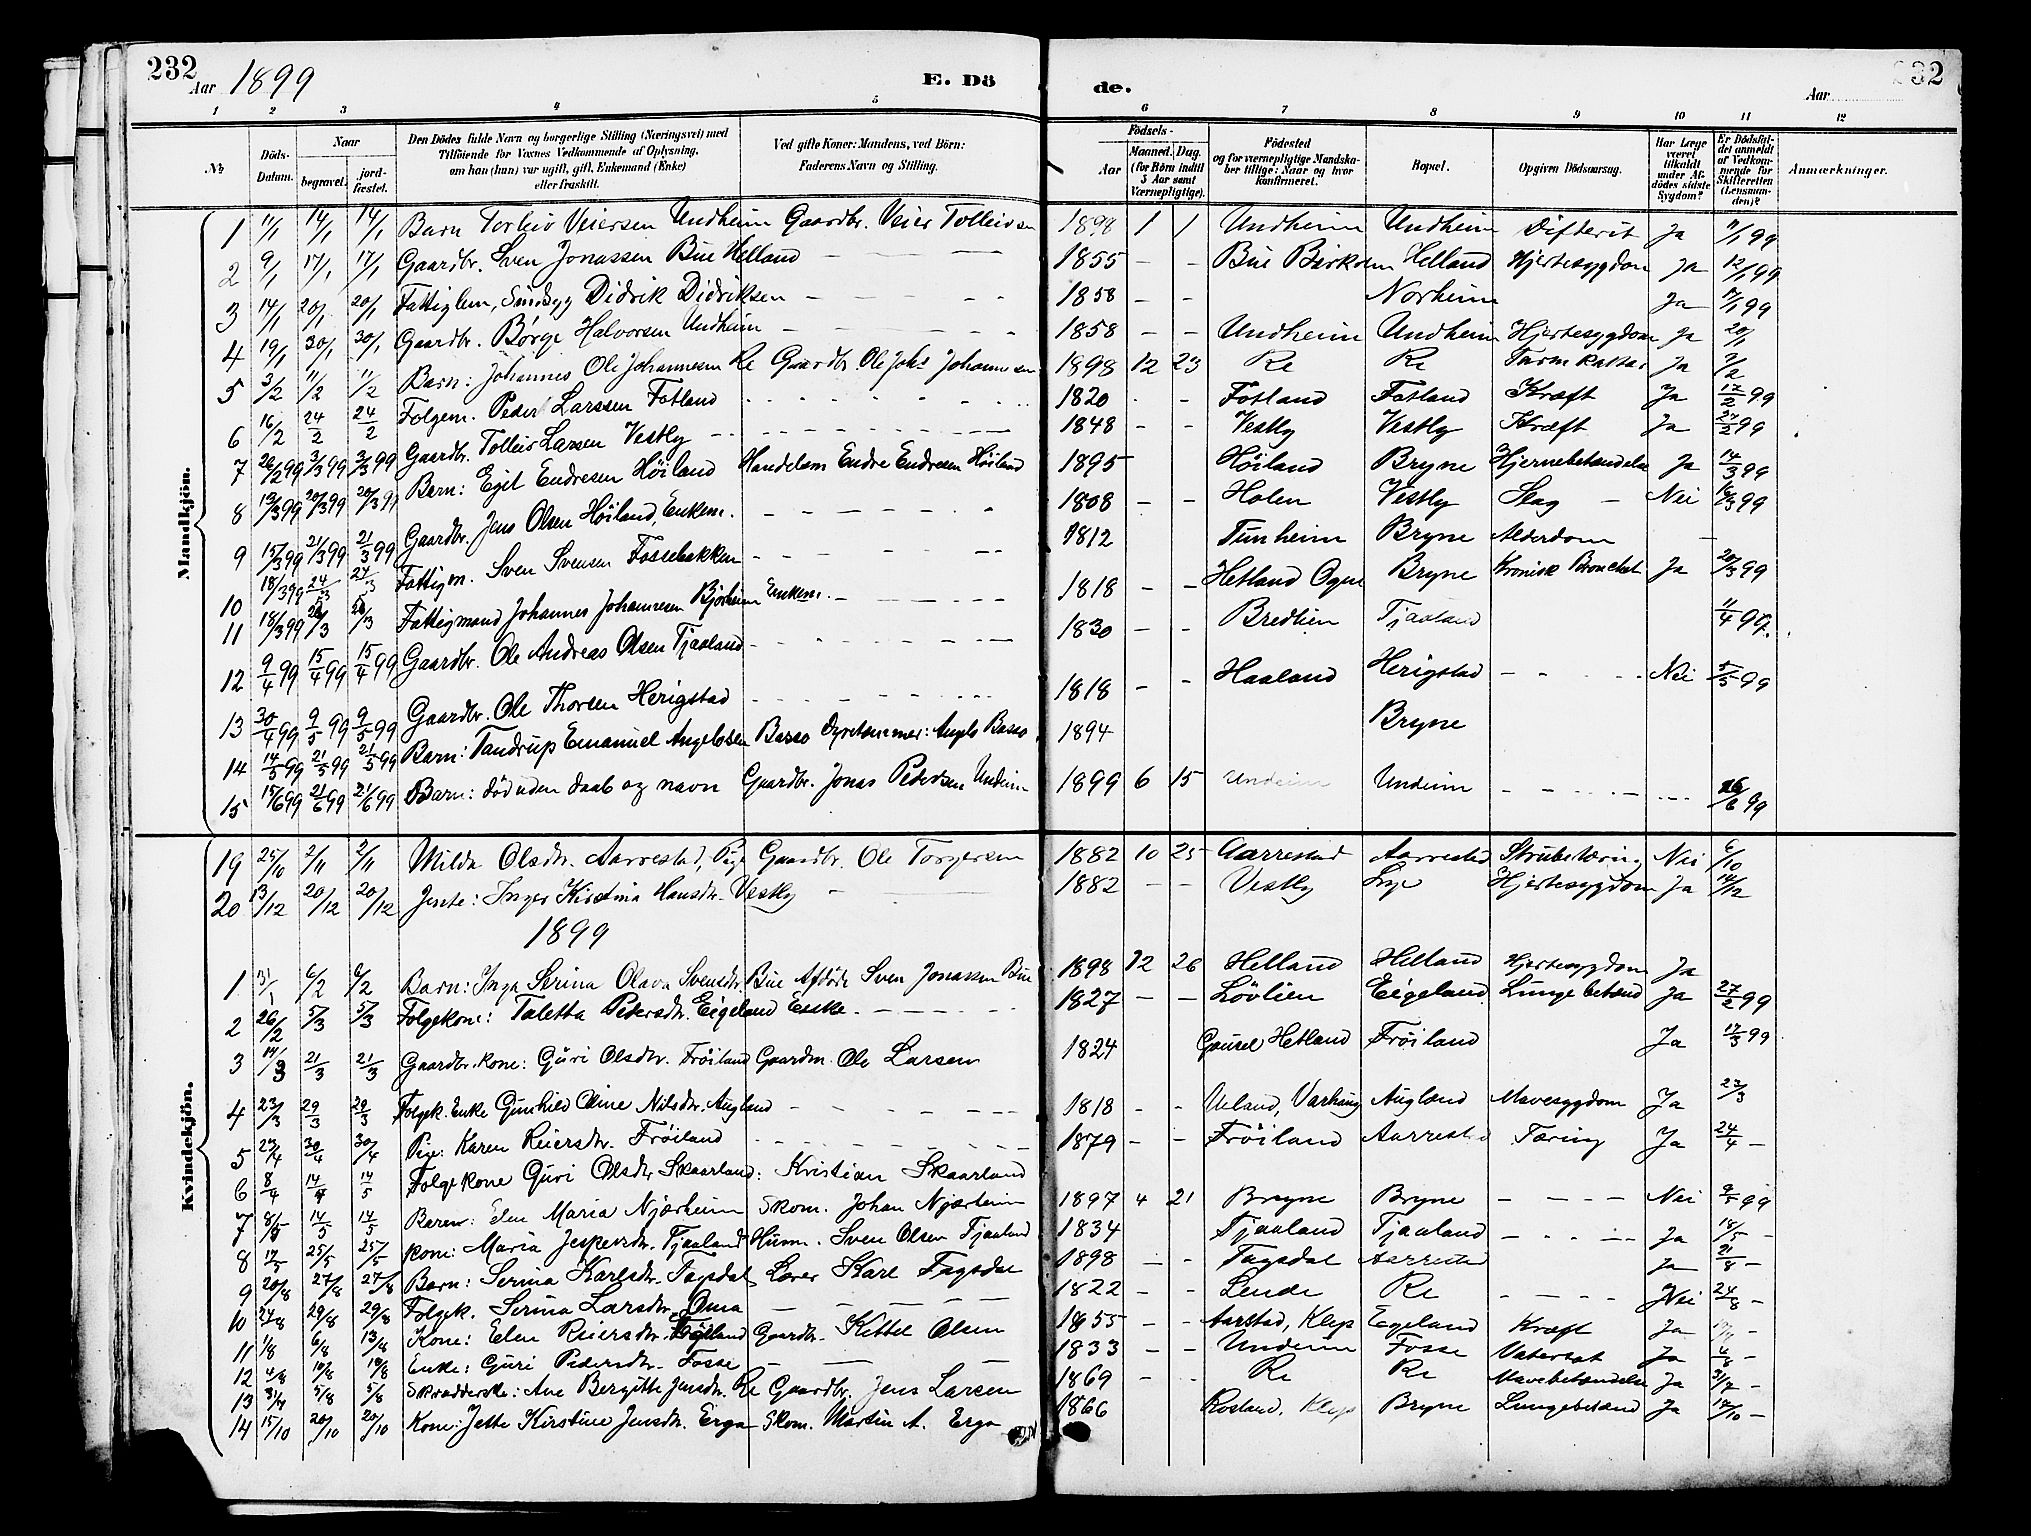 232 Aar 1899 E. Dö de. Aar 232
1 2 3 4 5 6 7 8 9 10 11 12
No Döds-Datum. Naar begravet. jord-fæstet. Den Dödes fulde Navn og borgerlige Stilling (Næringsvei) med Tilföiende for Voxnes Vedkommende af Oplysning, om han (hun) var ugift, gift, Enkemand (Enke) eller fraskilt. Ved gifte Koner: Mandens, ved Börn: Faderens Navn og Stilling. Födsels- Aar Maaned. Dag. (for Börn indtil 5 Aar samt Værnepligtige). Födested og for værnepligtige Mandska-ber tillige: Naar og hvor konfirmeret. Bopæl. Opgiven Dödsaarsag. Har Læge været tilkaldt under Af-dödes sidste Sygdom? Er Dödsfal-det anmeldt af Vedkom-mende for Skifteretten (Lensman-den)? Anmærkninger.
Mandkjön.
1 11/1 14/1 14/1 Barn Torleiv Veiersen Undheim Gaardbr. Veier Tolleivsen 1898 1 1 Undheim Undheim Difterit Ja 11/1 99
2 9/1 17/1 17/1 Gaardbr. Sven Jonassen Bue Helland 1855 - - Bue Helland Hjertesygdom Ja 12/1 99
3 14/1 20/1 20/1 Fattiglem, Sindsyg Didrik Didriksen 1858 - - Norheim Ja 17/1 99
4 19/1 30/1 30/1 Gaardbr. Börge Halvorsen Undheim 1858 - - Undheim Undheim Hjertesygdom Ja 20/1
5 3/2 11/2 11/2 Barn: Johannes Ole Johannesen Re Gaardbr. Ole Johs Johannesen 1898 12 23 Re Re Tarmkattar Ja 7/2
6 16/2 24/2 24/2 Folgem. Peder Larssen Fotland 1820 - - Fotland Fotland Kræft Ja 17/2 99
7 26/2 99 3/3 99 3/3 99 Gaardbr. Tolleiv Larsen Vestly 1848 - - Vestly Vestly Kræft Ja 27/2 99
8 13/3 99 20/3 99 20/3 99 Barn: Egil Endresen Höiland Handelsm Endre Endresen Höiland 1895 Höiland Bryne Hjernebetændelse Ja 14/3 99
9 15/3 99 21/3 99 21/3 99 Gaardbr. Jens Olsen Höiland, Enkem. 1808 - - Holen Vestly Slag - Nei 99
10 18/3 99 24/3 24/3 Fattigm. Sven Svensen Fossebakken 1812 Tunheim Bryne Alderdom -
11 18/3 99 26/3 26/3 Fattigmand Johannes Johannesen Bjorheim Enkem. 1818 - - Hetland Ogne Bryne Kronisk Bronchit Ja 20/3 99
12 9/4 99 15/4 99 15/4 99 Gaardbr. Ole Andreas Olsen Tjaaland 1830 - - Bredlien Tjaaland 11/4 99.
13 30/4 99 9/5 99 9/5 99 Gaardbr. Ole Thorsen Herigstad 1818 - - Haaland Herigstad - Nei 5/5 99
14 14/5 99 21/5 99 21/5 99 Barn: Tandrup Emanuel Angelosen Basso Dyretæmmer: Angelo Basso 1894 Bryne
15 15/6 99 21/6 99 21/6 99 Barn: död uden daab og navn Gaardbr. Jonas Pedersen Undeim 1899 6 15 Undeim Undeim - 16/6 99
Kvindekjön.
19 25/10 2/11 2/11 Milda Olsdtr. Aarrestad, Pige Gaardbr. Ole Torgersen 1882 10 25 Aarrestad Aarrestad Strubetæring Nei 6/10
20 13/12 20/12 20/12 Jente: Inger Kirstina Hansdtr. Vestly 1882 - - Vestly Lye Hjertesygdom Ja 14/12
1899
1 31/1 6/2 6/2 Barn: Inga Serina Olava Svensdtr. Bue Afdöde Sven Jonassen Bue 1898 12 26 Helland Helland Hjertesygdom Ja
2 26/2 5/3 5/3 Folgekone: Taletta Pedersdtr. Eigeland Enke. 1827 - - Lövlien Eigeland Lungebetænd Ja 27/2 99
3 14/3 21/3 21/3 Gaardbr. kone: Guri Olsdtr. Fröiland Gaardm. Ole Larsen 1824 Gausel Hetland Fröiland Ja 17/3 99
4 23/3 29/3 29/3 Folgek. Enke Gunhild Oline Nilsdtr. Augland 1818 - - Ueland, Varhaug Augland Mavesygdom Ja 27/3
5 23/4 30/4 30/4 Pige: Karen Reiersdtr. Fröiland 1879 - - Fröiland Aarrestad Tæring Ja 24/4 -
6 8/4 14/4 14/5 Folgekone Guri Olsdtr Skaarland: Kristian Skaarland
7 8/5 14/5 14/5 Barn: Elen Maria Njærheim Skom. Johan Njærheim 1897 4 21 Bryne Bryne - Nei 9/5 99
8 17/5 25/5 25/5 Kone: Maria Jespersdtr. Tjaaland Husm. Sven Olsen Tjaaland 1834 Tjaaland Tjaaland - Ja 18/5 -
9 20/8 27/8 27/8 Barn: Serina Karlsdtr. Fagsdal Lærer Karl Fagsdal 1898 - - Fagsdal Aarrestad Ja 21/8 -
10 24/8 29/8 29/8 Folgek. Serina Larsdtr. Oma 1822 - - Lende Re - Nei 24/8 -
11 1/8 6/8 13/8 Kone: Elen Reiersdtr. Gaardbr. Kittel Olsen 1855 - - Aarstad, Klep Egeland Kræft Ja
12 4/8 10/8 10/8 Enke: Guri Pedersdtr. Fosse 1833 - - Undeim Fosse Vatersot Ja 4/8 -
13 31/7 5/8 5/8 Skrædderske: Ane Bergitte Jensdtr. Re Gaardbr. Jens Larsen 1869 - - Re Re Mavebetændelse Ja 31/7 -
14 15/10 20/10 20/10 Kone: Jette Kirstine Jensdtr. Erga Skom. Martin A. Erga 1866 Rosland, Klep Bryne Lungebetænd Ja 17/10 -